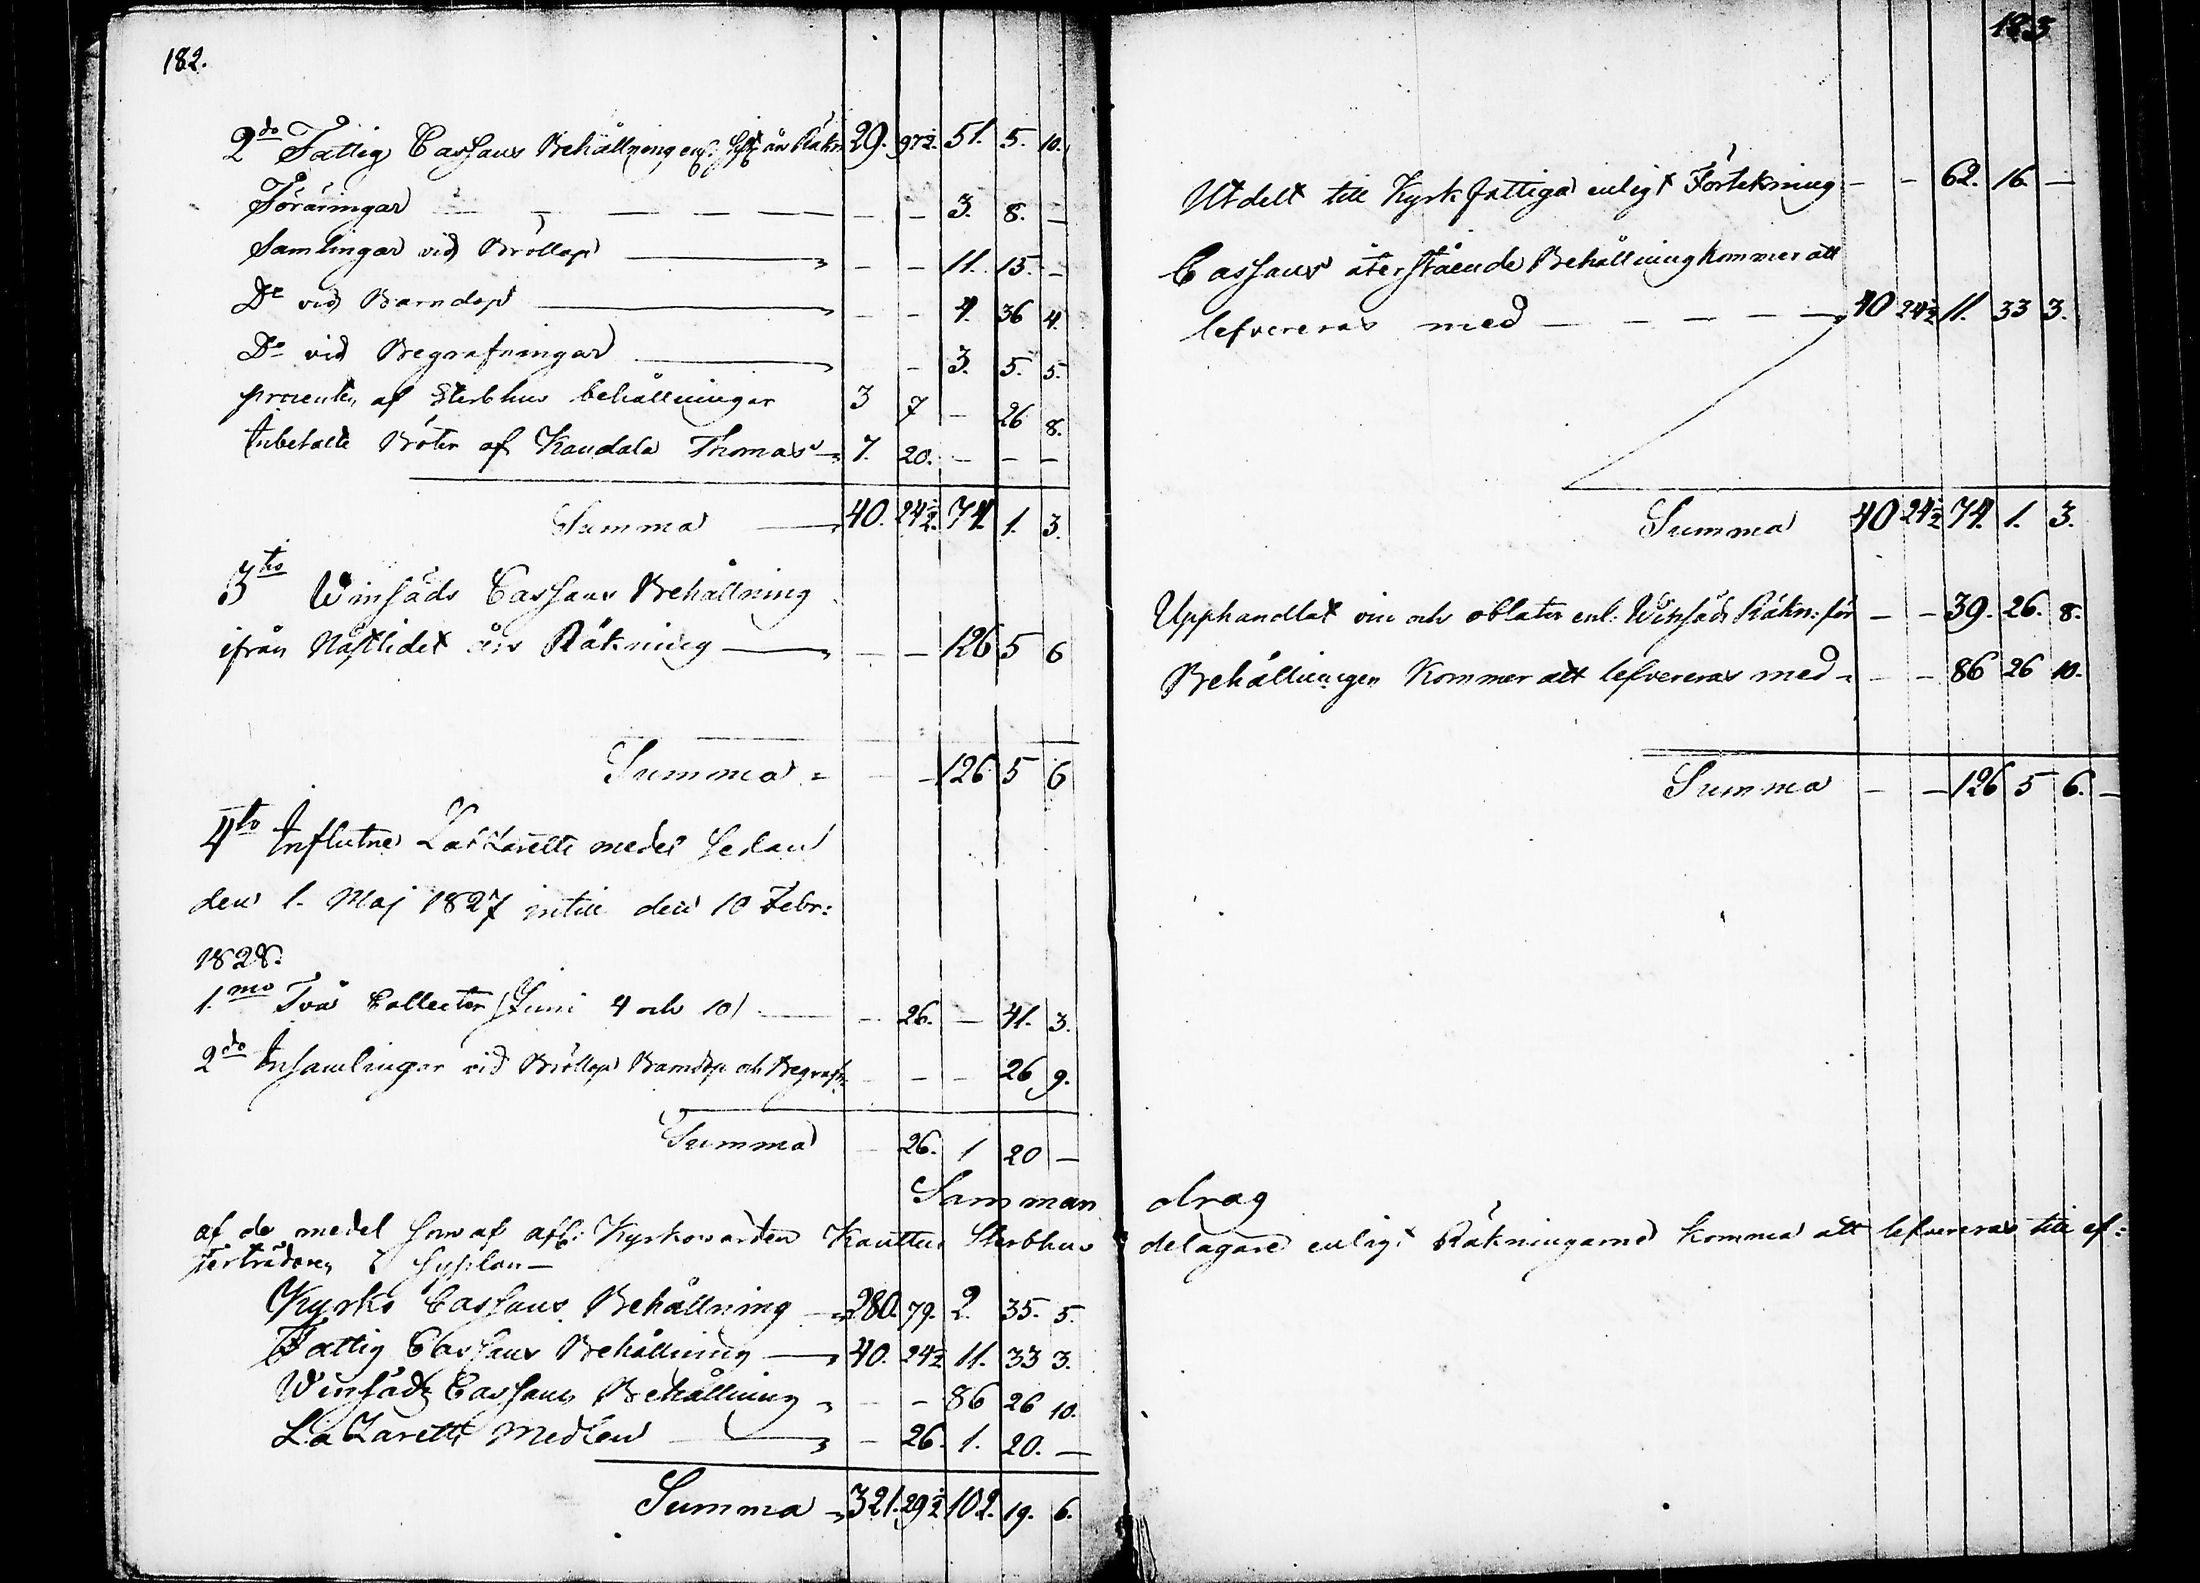 182.
2do Fattig Cassans Behållning enl: sist års Räkn: 29. 97½. 51. 5. 10.
Föräringar — — — — — — — 3. 8. —
Samlingar vid Bröllop — — — 11. 15. —
Do vid Barndop — — — 4. 36 4.
Do vid Begrafningar — — 3. 5. 5.
procenter af Sterbhus behållningar 3 7 — 26 8.
Inbetalte Böter af Kaudala Thomas 7. 20. — — —
Summa — 40. 24½. 74. 1. 3.
3tio Winsäds Cassans Behållning
ifrån Nästlidet års Räkning — — — 126 5 6
Summa — — 126 5 6
4to Influtne Lazaretts medel sedan
den 1. Maj 1827 intill den 10 Febr:
1828.
1.mo Två Collecter (Juni 4 och 10) — — 26. — 41. 3.
2do Insamlingar vid Bröllop Barndop och Begrafn: — — — 26 9.
Summa — 26. 1 20 —
Samman
af de medel som af afl: Kyrkowärden Kauttus Sterbhus
terträdaren i sysslan —
Kyrko Cassans Behållning — 280. 79. 2. 35. 5.
Fattig Cassans Behållning — 40. 24½ 11. 33 3.
Winsäds Cassans Behållning — — 86 26 10.
Lazaretts Medlen — — 26. 1. 20. —
Summa — 321. 29½ 102. 19. 6.
183
Utdelt till Kyrk fattiga enligt Förtekning — — 62. 16. —
Cassans återstående Behållning kommer att
lefvereras med — — — — — 40 24½ 11. 33 3.
Summa 40 24½ 74. 1. 3.
Upphandlat vin och oblater enl: Winsäds Räkn: för — — 39. 26. 8.
Behållningen Kommer att lefvereras med — — — 86 26 10.
Summa — — 126 5 6. —
drag
delägare enligt Räkningarne komma att lefvereras till ef: